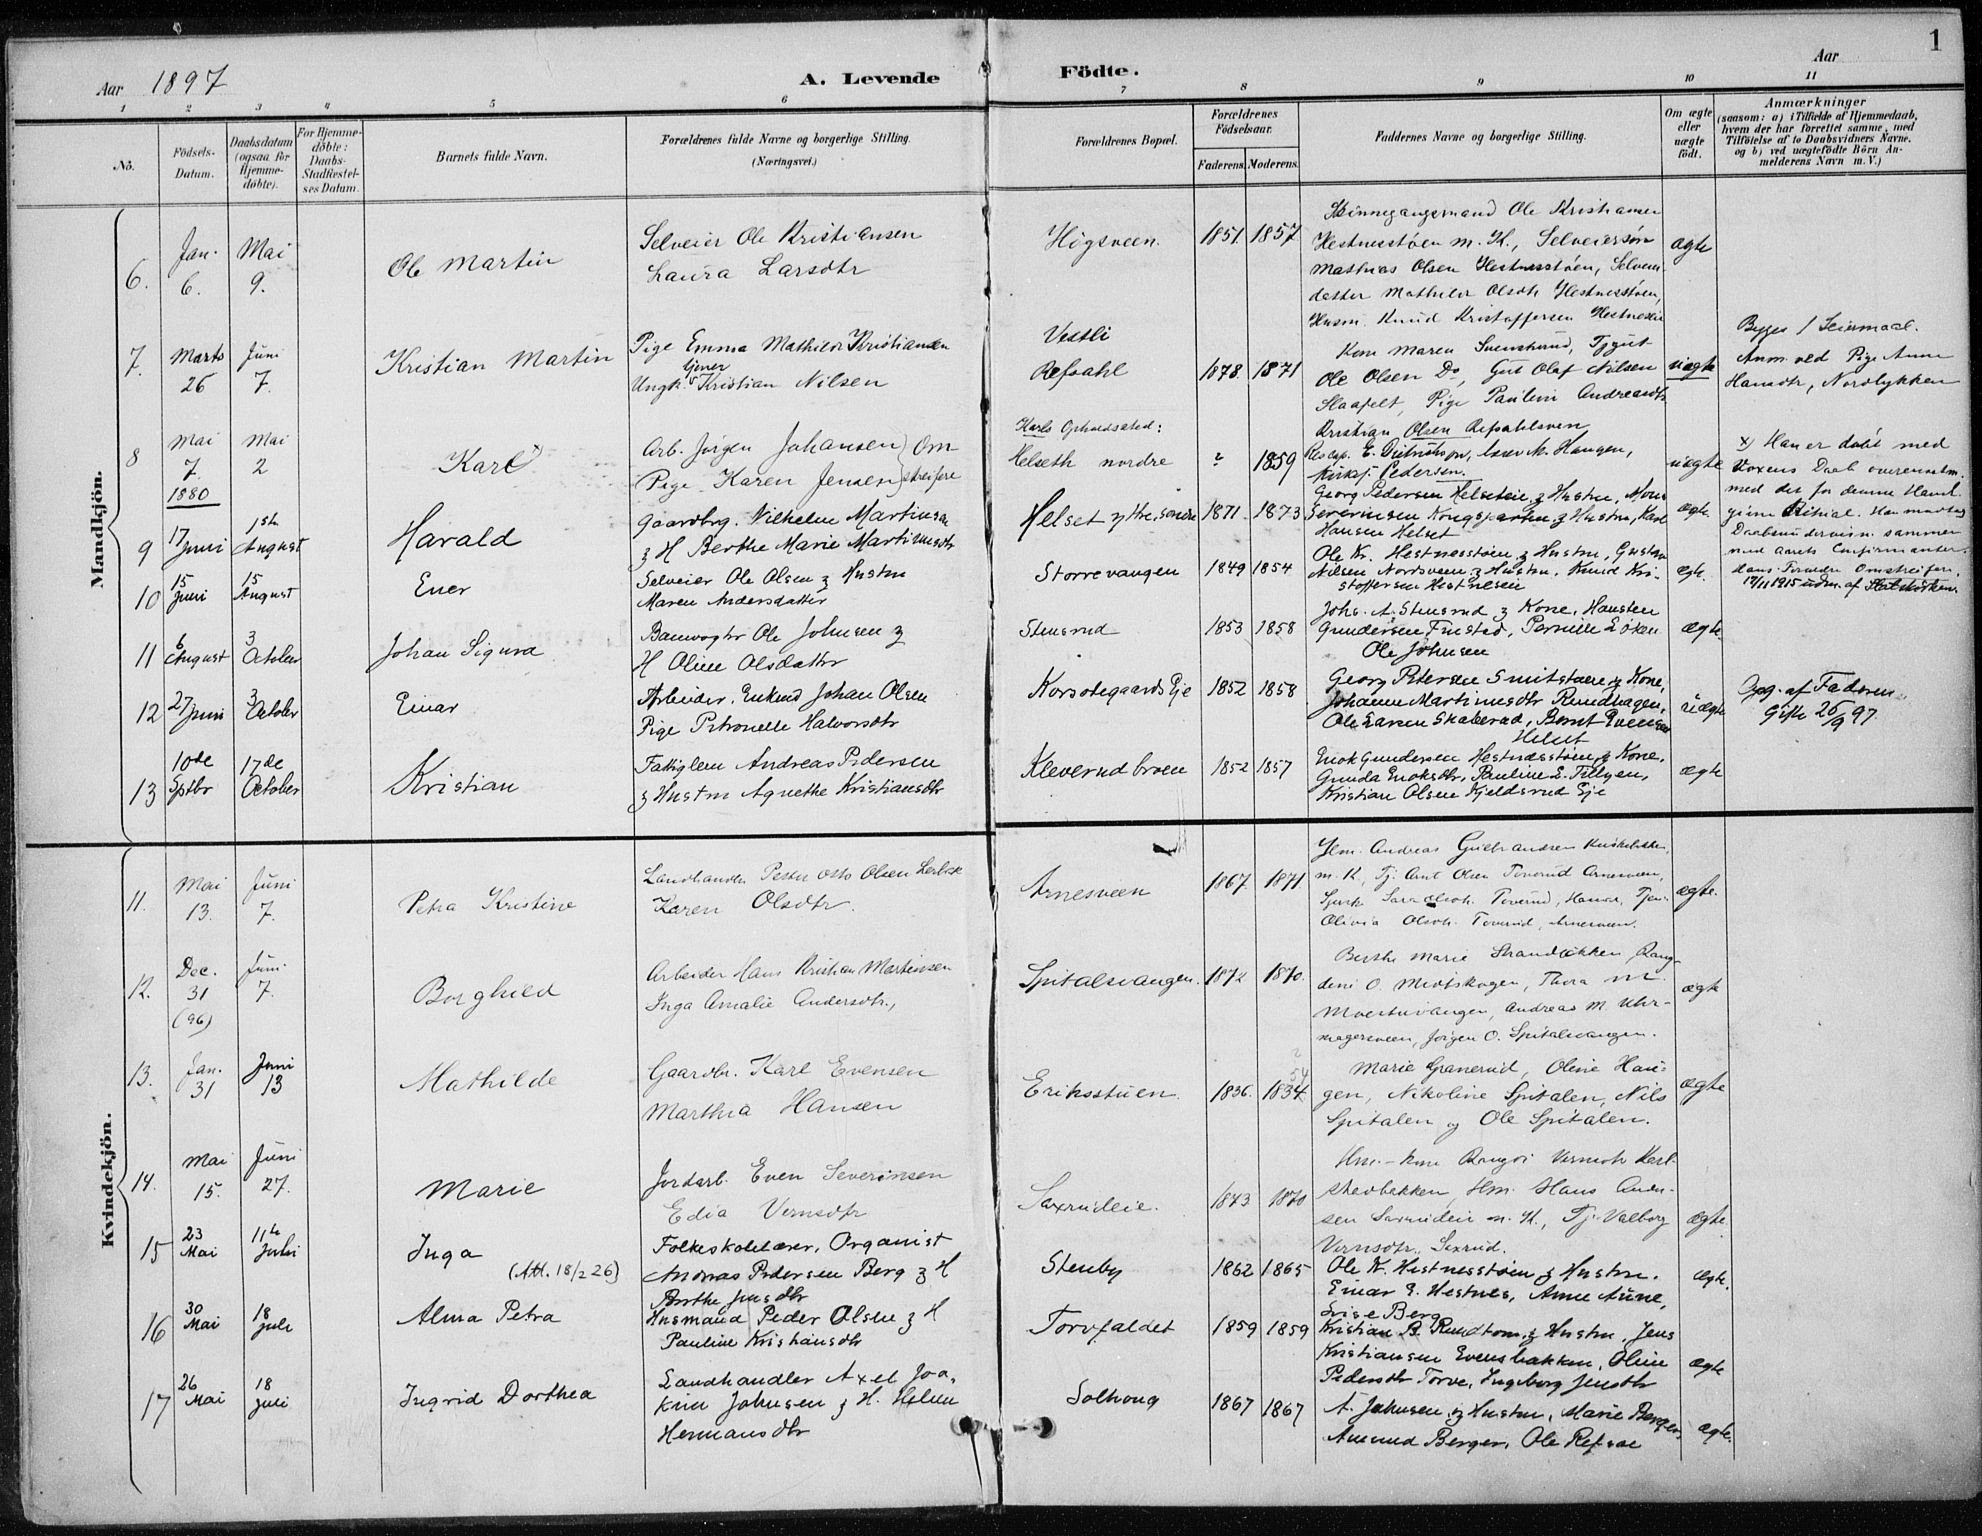 1
Aar 1897
A. Levende Födte.
Aar
1 2 3 4 5 6 7 8 9 10 11
No.
Födsels-Datum.
Daabsdatum (ogsaa for Hjemmedöbte).
For Hjemmedöbte: Daabs-Stadfæstelses Datum.
Barnets fulde Navn.
Forældrenes fulde Navne og borgerlige Stilling. (Næringsvei.)
Forældrenes Bopæl.
Forældrenes Födselsaar.
Faderens. Moderens.
Faddernes Navne og borgerlige Stilling.
Om ægte eller uægte födt.
Anmærkninger
(saasom: a) i Tilfælde af Hjemmedaab, hvem der har forrettet samme, med Tilföielse af to Daabsvidners Navne. og b) ved uægtefödte Börn Anmelderens Navn m. V.)
Mandkjön.
6. Jan. 6. Mai 9. Ole Martin
Selveier Ole Kristiansen
Laura Larsdtr
Högsveen. 1851. 1857
Ole Kristiansen
Hestnesstöen m. K., Selveiersön
Mathias Olsen Hestnesstöen, Selveier
datter Mathilde Olsdtr Hestnesstöen,
Husm. Knud Kristoffersen Hestneseie
ægte
7. Marts 26 Juni 7. Kristian Martin
Pige Emma Mathilde Kristiansen
Ungk. Kristian Nilsen
Vestli
Refsahl 1878. 1871
Kone Maren Svensrud, Tjgut
Ole Olsen Do, Gut Olaf Nilsen
Slaafelt, Pige Pauline Andreasdtr
Kristian Olsen Refsahlsveen
uægte
Anm. ved Pige Anne
Hansdtr, Nordlykken
8 Mai 7. 1880 Mai 2 Karl x)
Arb. Jörgen Johansen) Om
Pige Karen Jensen) streifere
Karls Opholdssted:
Helseth nordre ? 1859
Haugen,
Kirkesj. Pedersen.
uægte
x) Han er döbt med
Voxens Daab overensstm.
med det for denne Handl.
givne Ritual. Han modtog
Daabsundervisn. sammen
med aarets Confirmanter.
Omstreifer.
17/11 1915 udm. af Statskirken.
9 17 Juni 1ste August Harald
Gaardbrg. Vilhelm Martinsen
& H Berthe Marie Martinusdtr
Helset ytre söndre 1871. 1873
Georg Pedersen Helseteie & Hustru,
Severinsen & Hustru, Karl
Hansen Helset
ægte.
10 15 Juni 15 August Ener
Selveier Ole Olsen & Hustru
Maren Andersdatter
Storrevangen 1849 1854
Ole Kr. Hestnesstöen & Hustru, Gustav
Nilsen Nordsveen & Hustru, Knud Kri-
stoffersen Hestneseie
ægte.
11 6 August 3 October Johan Sigurd
Banevogter Ole Johnsen &
H Oline Olsdatter
Stensrud 1853 1858
Johs. A. Stensrud & Kone, Hansten
Gundersen Finstad, Pernille Löken
Ole Johnsen
ægte.
12 27 Juni 3 October Einar
Arbeider, Enkemd Johan Olsen
Pige Petronelle Halvorsdtr
Korsödegaards Eje 1852 1858
Georg Petersen & Kone,
Johanne Martinusdtr Rundhagen,
Ole Larsen Skaberud, Bernt Evensen
Helset
uægte
Opg. af Faderen
Gifte 26/9 97.
13 10de Sptbr 17de October Kristian
Fattiglem Andreas Pedersen
& Hustru Agnethe Kristiansdtr
Kleverudbroen 1852 1857
Enok Gundersen Hestnesstöen & Kone,
Gunda Enoksdtr, Pauline E. Tillyen,
Kristian Olsen Kjeldsrud Eje
ægte
Kvindekjön.
11. Mai 13. Juni 7. Petra Kristine
Landhandler Petter Otto Olsen
Karen Olsdtr.
Arnesveen 1867. 1871.
Hm. Andreas
m. K, Tj. Amt Olsen Toverud Arnesveen,
Olivia Olsdtr. Toverud, Arnesveen.
ægte.
12. Dec. 31 (96) Juni 7. Borghild
Arbeider Hans Kristian Martinsen
Inga Amalie Andersdtr.,
Spitalsvangen. 1872 1870.
Berthe Marie Strandbakken, Rang-
dine O. Midtskogen, Thora M.
Andreas M. Uhr-
magersveen, Jörgen O. Spitalsvangen.
ægte
13. Jan. 31 Juni 13 Mathilde
Gaardbr. Karl Evensen
Martha Hansen
Eriksstuen. 1836. 1834. ? 54
Marie Granerud, Oline Hau-
gen, Nikoline Spitalen, Nils
Spitalen og Ole Spitalen.
ægte
14. Mai 15. Juni 27. Marie
Jordarb. Even Severinsen
Edia Vernsdtr
Saxrudeie. 1873 1870
Hans Ander-
sen Saxrudeie m. K., Tj. Valborg
Vernsdtr, Saxrud.
ægte
15 23 Mai 11te Juli Inga
(Att. 18/2 26)
Folkeskolelærer, Organist
Andreas Pedersen Berg & H
Berthe Jensdtr
Stenby 1862 1865
Ole K. Hestnesstöen & Hustru.
Einar E. Hestnes, Anne Aune,
Lovise Berg
ægte.
16 30 Mai 18 Juli Alma Petra
Husmand Peder Olsen & H
Pauline Kristiansdtr
Torvfaldet 1859 1859
Kristian B. Rundtom & Hustru, Jens
Kristiansen Evensbakken, Oline
Pedersdtr Torve, Ingeborg Jensdtr
ægte
17 26 Mai 18 Juli Ingrid Dorthea
Landhandler Axel Joa-
kim Johnsen & H. Helene
Hermansdtr
Solhoug 1867 1867
A. Johnsen & Hustru, Marie Berger,
Amund Berger, Ole Refsae
ægte.